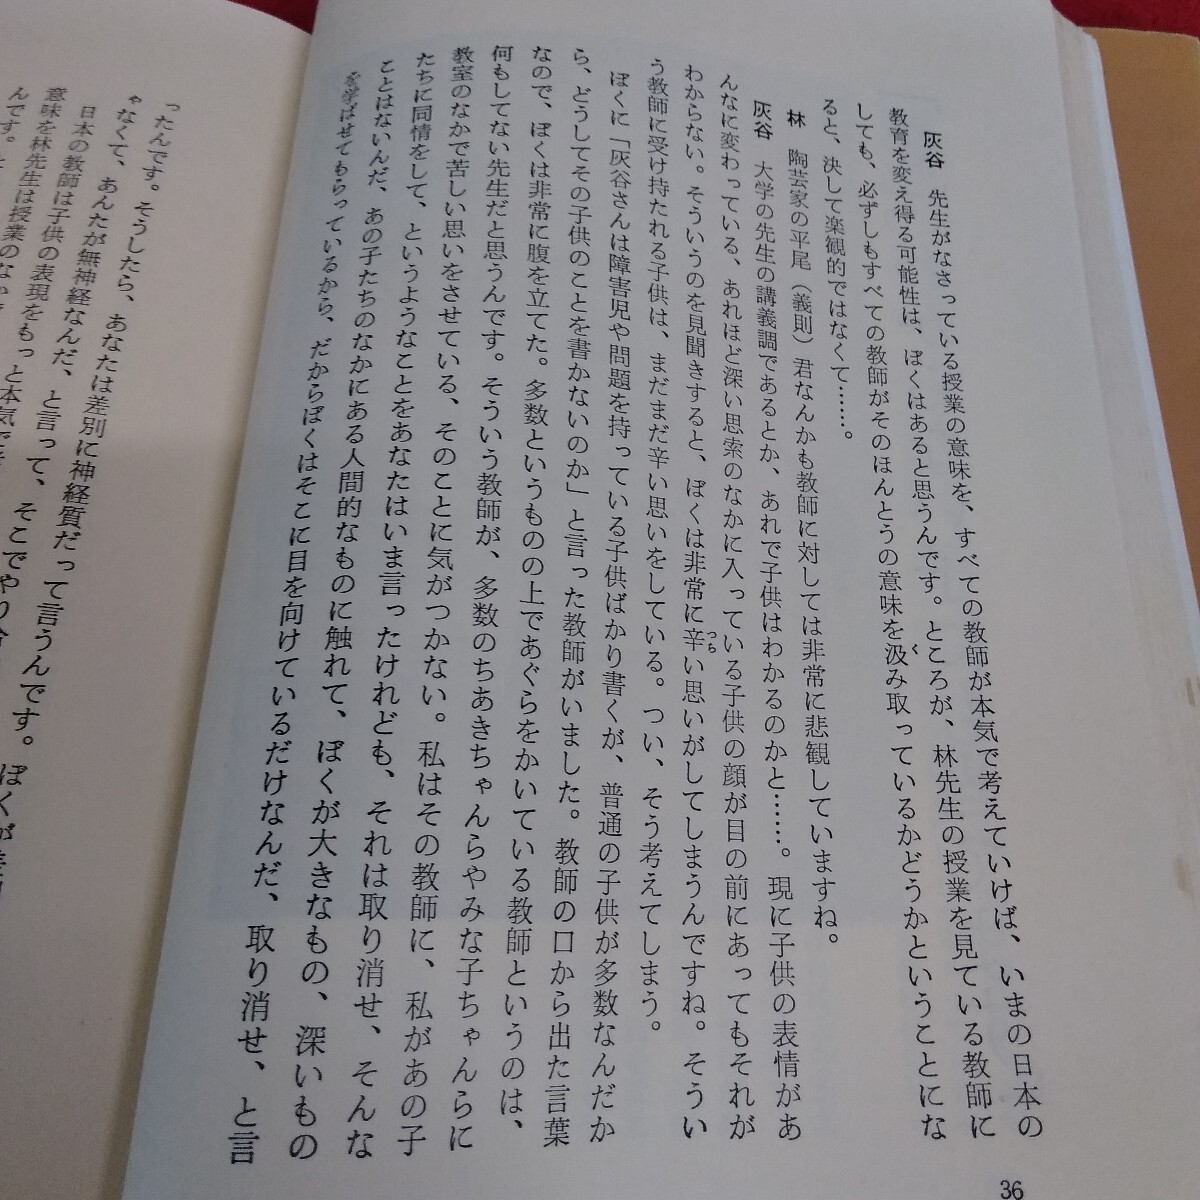 灰谷　先生がなさっている授業の意味を、すべての教師が本気で考えていけば、いまの日本の
教育を変え得る可能性は、ぼくはあると思うんです。ところが、林先生の授業を見ている教師に
しても、必ずしもすべての教師がそのほんとうの意味を汲み取っているかどうかということにな
ると、決して楽観的ではなくて……。
林　陶芸家の平尾（義則）君なんかも教師に対しては非常に悲観していますね。
灰谷　大学の先生の講義調であるとか、あれで子供はわかるのかと……。現に子供の表情があ
んなに変わっている、あれほど深い思索のなかに入っている子供の顔が目の前にあってもそれが
わからない。そういうのを見聞きすると、ぼくは非常に辛い思いがしてしまうんですね。そうい
う教師に受け持たれる子供は、まだまだ辛い思いをしている。つい、そう考えてしまう。
ぼくに「灰谷さんは障害児や問題を持っている子供ばかり書くが、普通の子供が多数なんだか
ら、どうしてその子供のことを書かないのか」と言った教師がいました。教師の口から出た言葉
なので、ぼくは非常に腹を立てた。多数というものの上であぐらをかいている教師というのは、
何もしてない先生だと思うんです。そういう教師が、多数のちあきちゃんらやみな子ちゃんらに
教室のなかで苦しい思いをさせている、そのことに気がつかない。私はその教師に、私があの子
たちに同情をして、というようなことをあなたはいま言ったけれども、それは取り消せ、そんな
ことはないんだ、あの子たちのなかにある人間的なものに触れて、ぼくが大きなもの、深いもの
を学ばせてもらっているから、だからぼくはそこに目を向けているだけなんだ、取り消せ、と言
36
ったんです。そうしたら、あなたは差別に神経質だって言うんです。ぼくが
ゃなくて、あんたが無神経なんだ、と言って、そこでやり
日本の教師は子供の表現をもっと本気で
意味を林先生は授業のなか
んです。